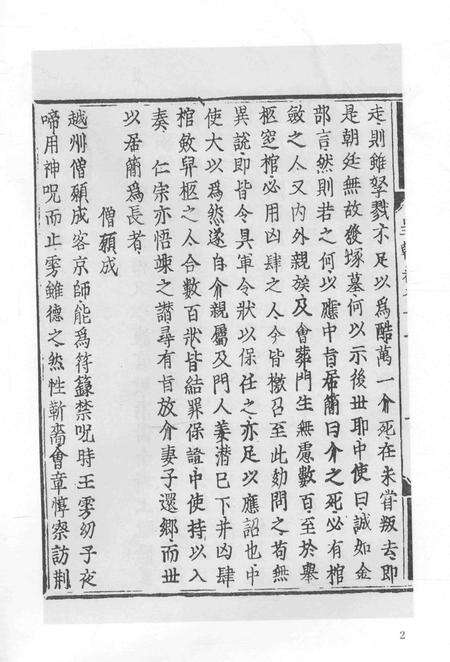 走則雖孥戮不足以爲酷萬一介死在未嘗叛去即
是朝廷無故發塚墓何以示後世耶中使曰誠如金
部言然則若之何以應中旨居簡曰介之死必有棺
斂之人又内外親族及會葬門生無慮數百至於舉
柩窆棺必用凶肆之人今皆檄召至此劾問之苟無
異說即皆令具軍令狀以保任之亦足以應詔也中
使大以爲然遂自介親屬及門人姜潜已下并凶肆
棺斂舁柩之人合數百狀皆結罪保證中使持以入
奏 仁宗亦悟竦之譖尋有旨放介妻子還鄉而世
以居簡爲長者
僧願成
越州僧願成客京師能爲符籙禁呪時王雱幼子夜
啼用神呪而止雱雖德之然性靳嗇會章惇察訪荆
2